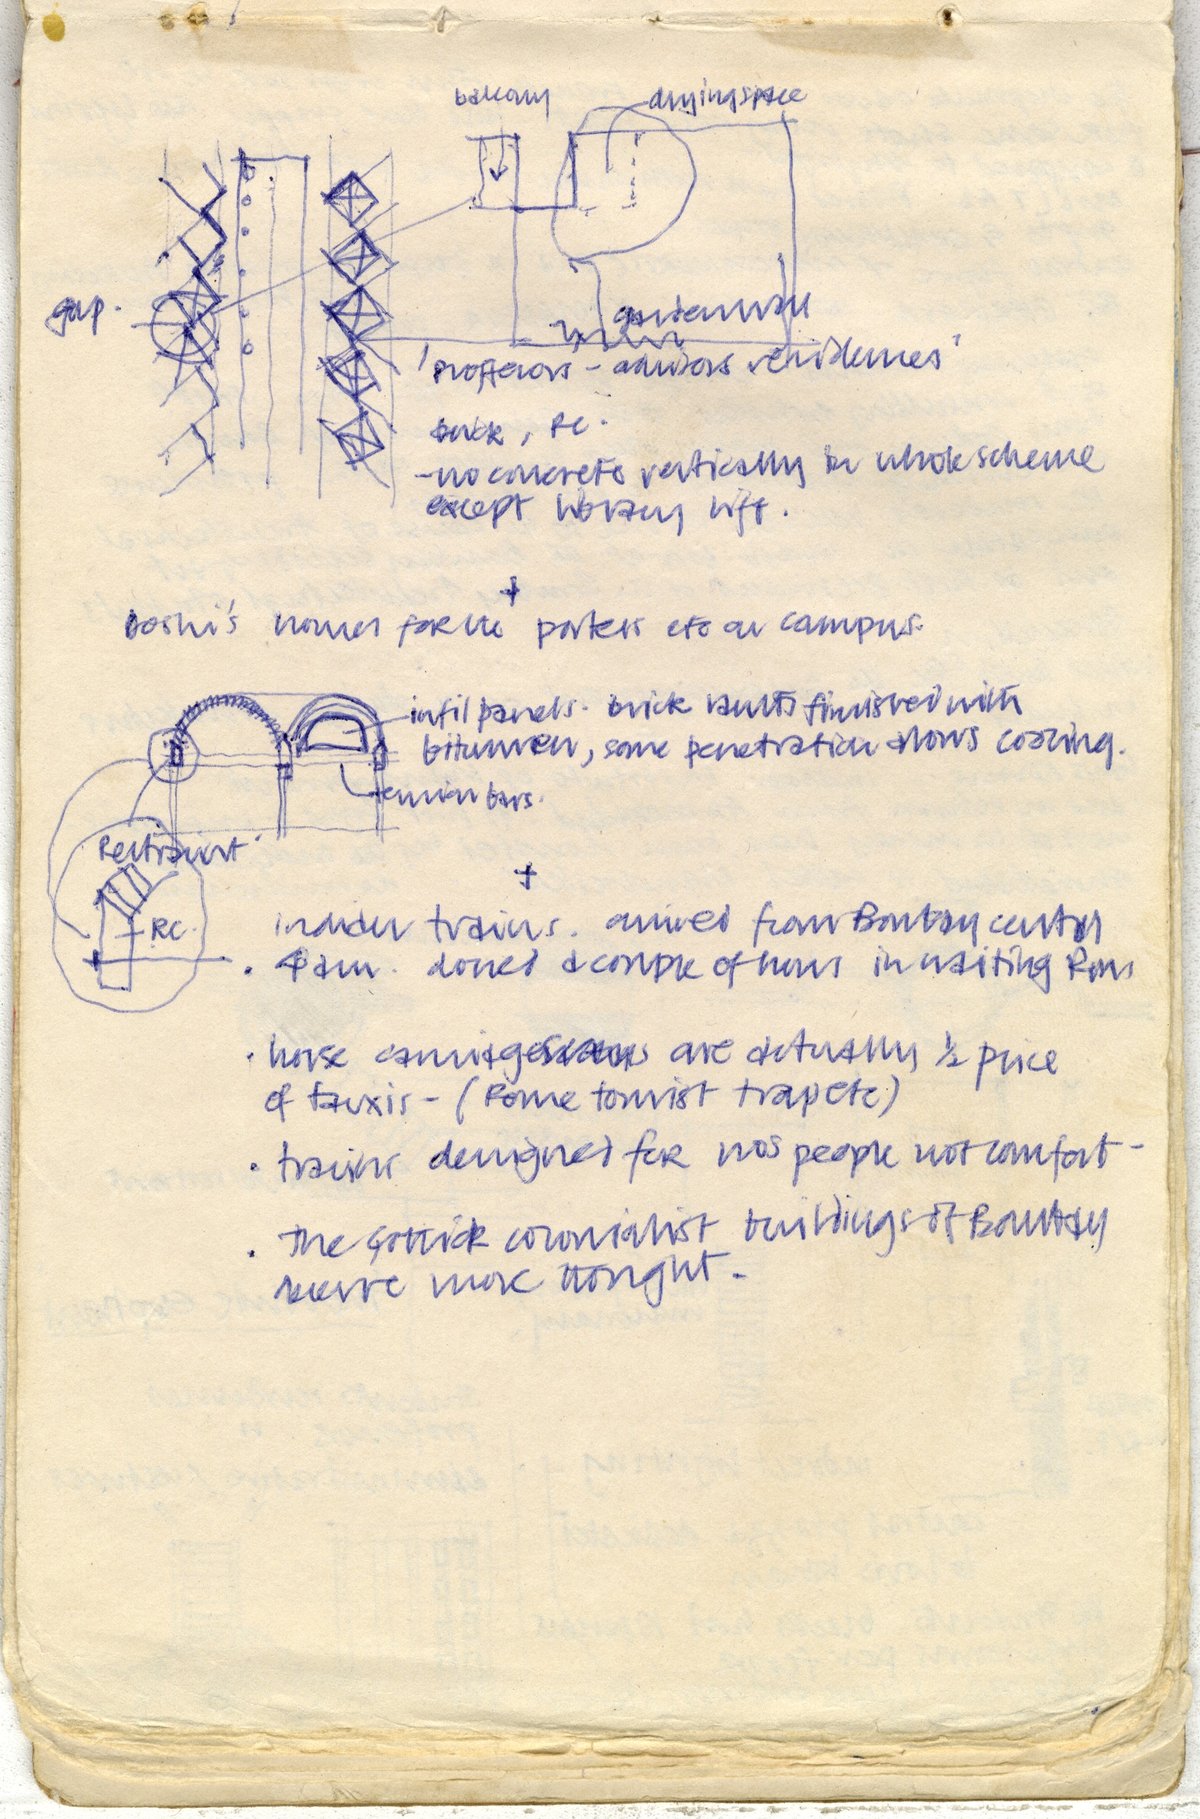 balcony
drying space
gap.
garden wall
'professors - advisors residences'
brick, RC.
- no concrete vertically in whole scheme
except library lift.
+
Doshi's homes for the porters etc on campus.
infil panels. brick vaults finished with
bitumen, some penetration allows cooling.
tension bars.
Restraint
RC.
+
indian trains. arrived from Bombay central
4am. dozed a couple of hours in waiting Room
· horse carriages are actually ½ price
of taxis - (Rome tourist trap etc)
· trains designed for nos people not comfort -
· The Gothick colonialist buildings of Bombay
deserve more thought -